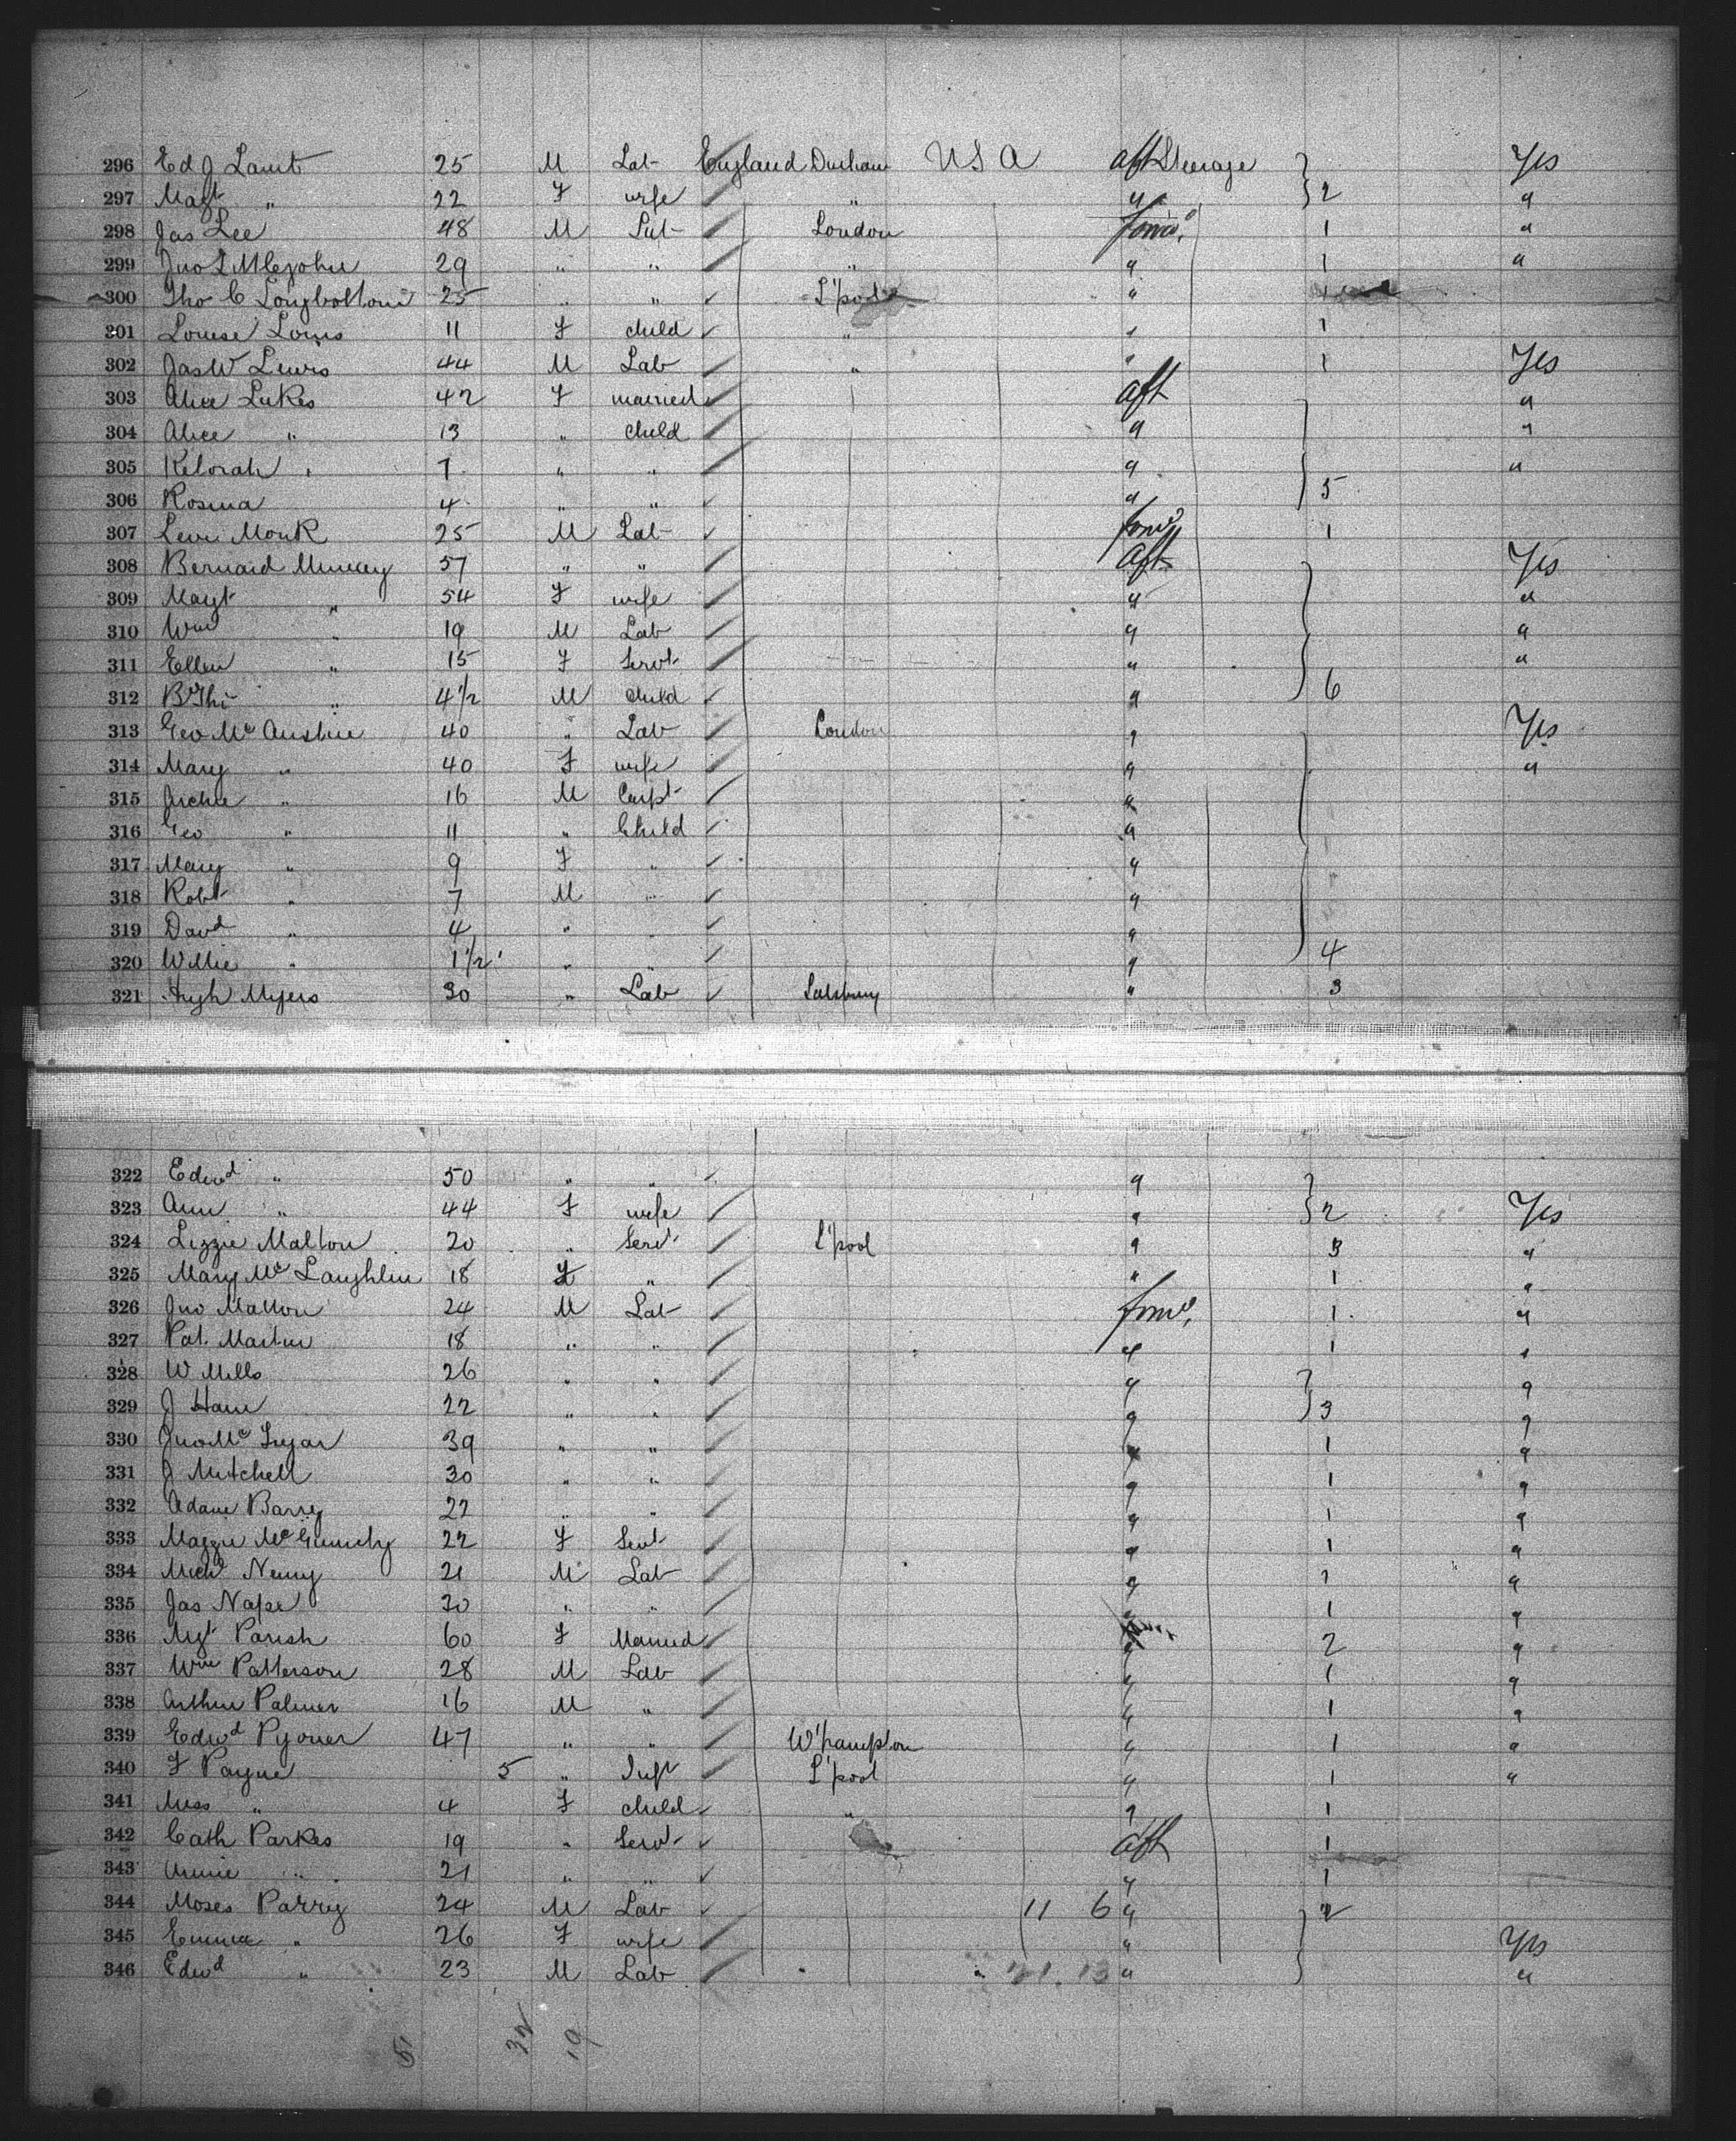 296 Ed J Lamb 25 M Lab England Durham USA aft Steerage Yes
297 Magt " 22 F wife " " 2 "
298 Jas Lee 48 M Lab London forwd 1 "
299 Jno 29 " " " " 1 "
300 Tho C Longbottom 25 " " L'pool "
201 Louise Louis 11 F child " " 1
302 Jas W Lewis 44 M Lab " " 1 Yes
303 Alice Lukes 42 F married aft "
304 Alice " 13 " child " "
305 Kelorah " 7 " " " "
306 Rosina 4 " " " 5
307 Levi Monk 25 M Lab forwd 1
308 Bernard 57 " " aft Yes
309 Magt " 54 F wife " "
310 Wm " 19 M Lab " "
311 Ellen " 15 F Servt " "
312 " 4½ M child " 6
313 Geo Mc Austin 40 " Lab London " Yes
314 Mary " 40 F wife " "
315 Archie " 16 M Carpt "
316 Geo " 11 " Child "
317 Mary " 9 F " "
318 Robt " 7 M " "
319 David " 4 " " "
320 Willie " 1½ " " " 4
321 Hugh Myers 30 " Lab Salsbury " 3
322 Edwd " 50 " " "
323 Ann " 44 F wife " 2 Yes
324 Lizzie Malton 20 " Servt L'pool " 3 "
325 Mary Mc Laughlin 18 F " " 1 "
326 Jno Mallon 24 M Lab forwd 1 "
327 Pat. Martin 18 " " " 1 "
328 W Mills 26 " " " "
329 J Ham 22 " " " 3 "
330 Jno Mc 39 " " " 1 "
331 J Mitchell 30 " " " 1 "
332 Adam Barry 22 " " " 1 "
333 Maggie 22 F Servt " 1 "
334 Michl 21 M Lab " 1 "
335 Jas 30 " " " 1 "
336 Mgt Parish 60 F Married " 2 "
337 Wm Patterson 28 M Lab " 1 "
338 Arthur Palmer 16 M " " 1 "
339 Edwd Pyoner 47 " " W'hampton " 1 "
340 F Payne 5 " Inft L'pool " 1 "
341 Miss " 4 F child " " 1
342 Cath Parkes 19 " Servt aft 1
343 Annie " 21 " " " 1
344 Moses Parry 24 M Lab 11 6 " 2
345 Emma " 26 F wife " Yes
346 Edwd " 23 M Lab 21. 13 " "
5 32 19